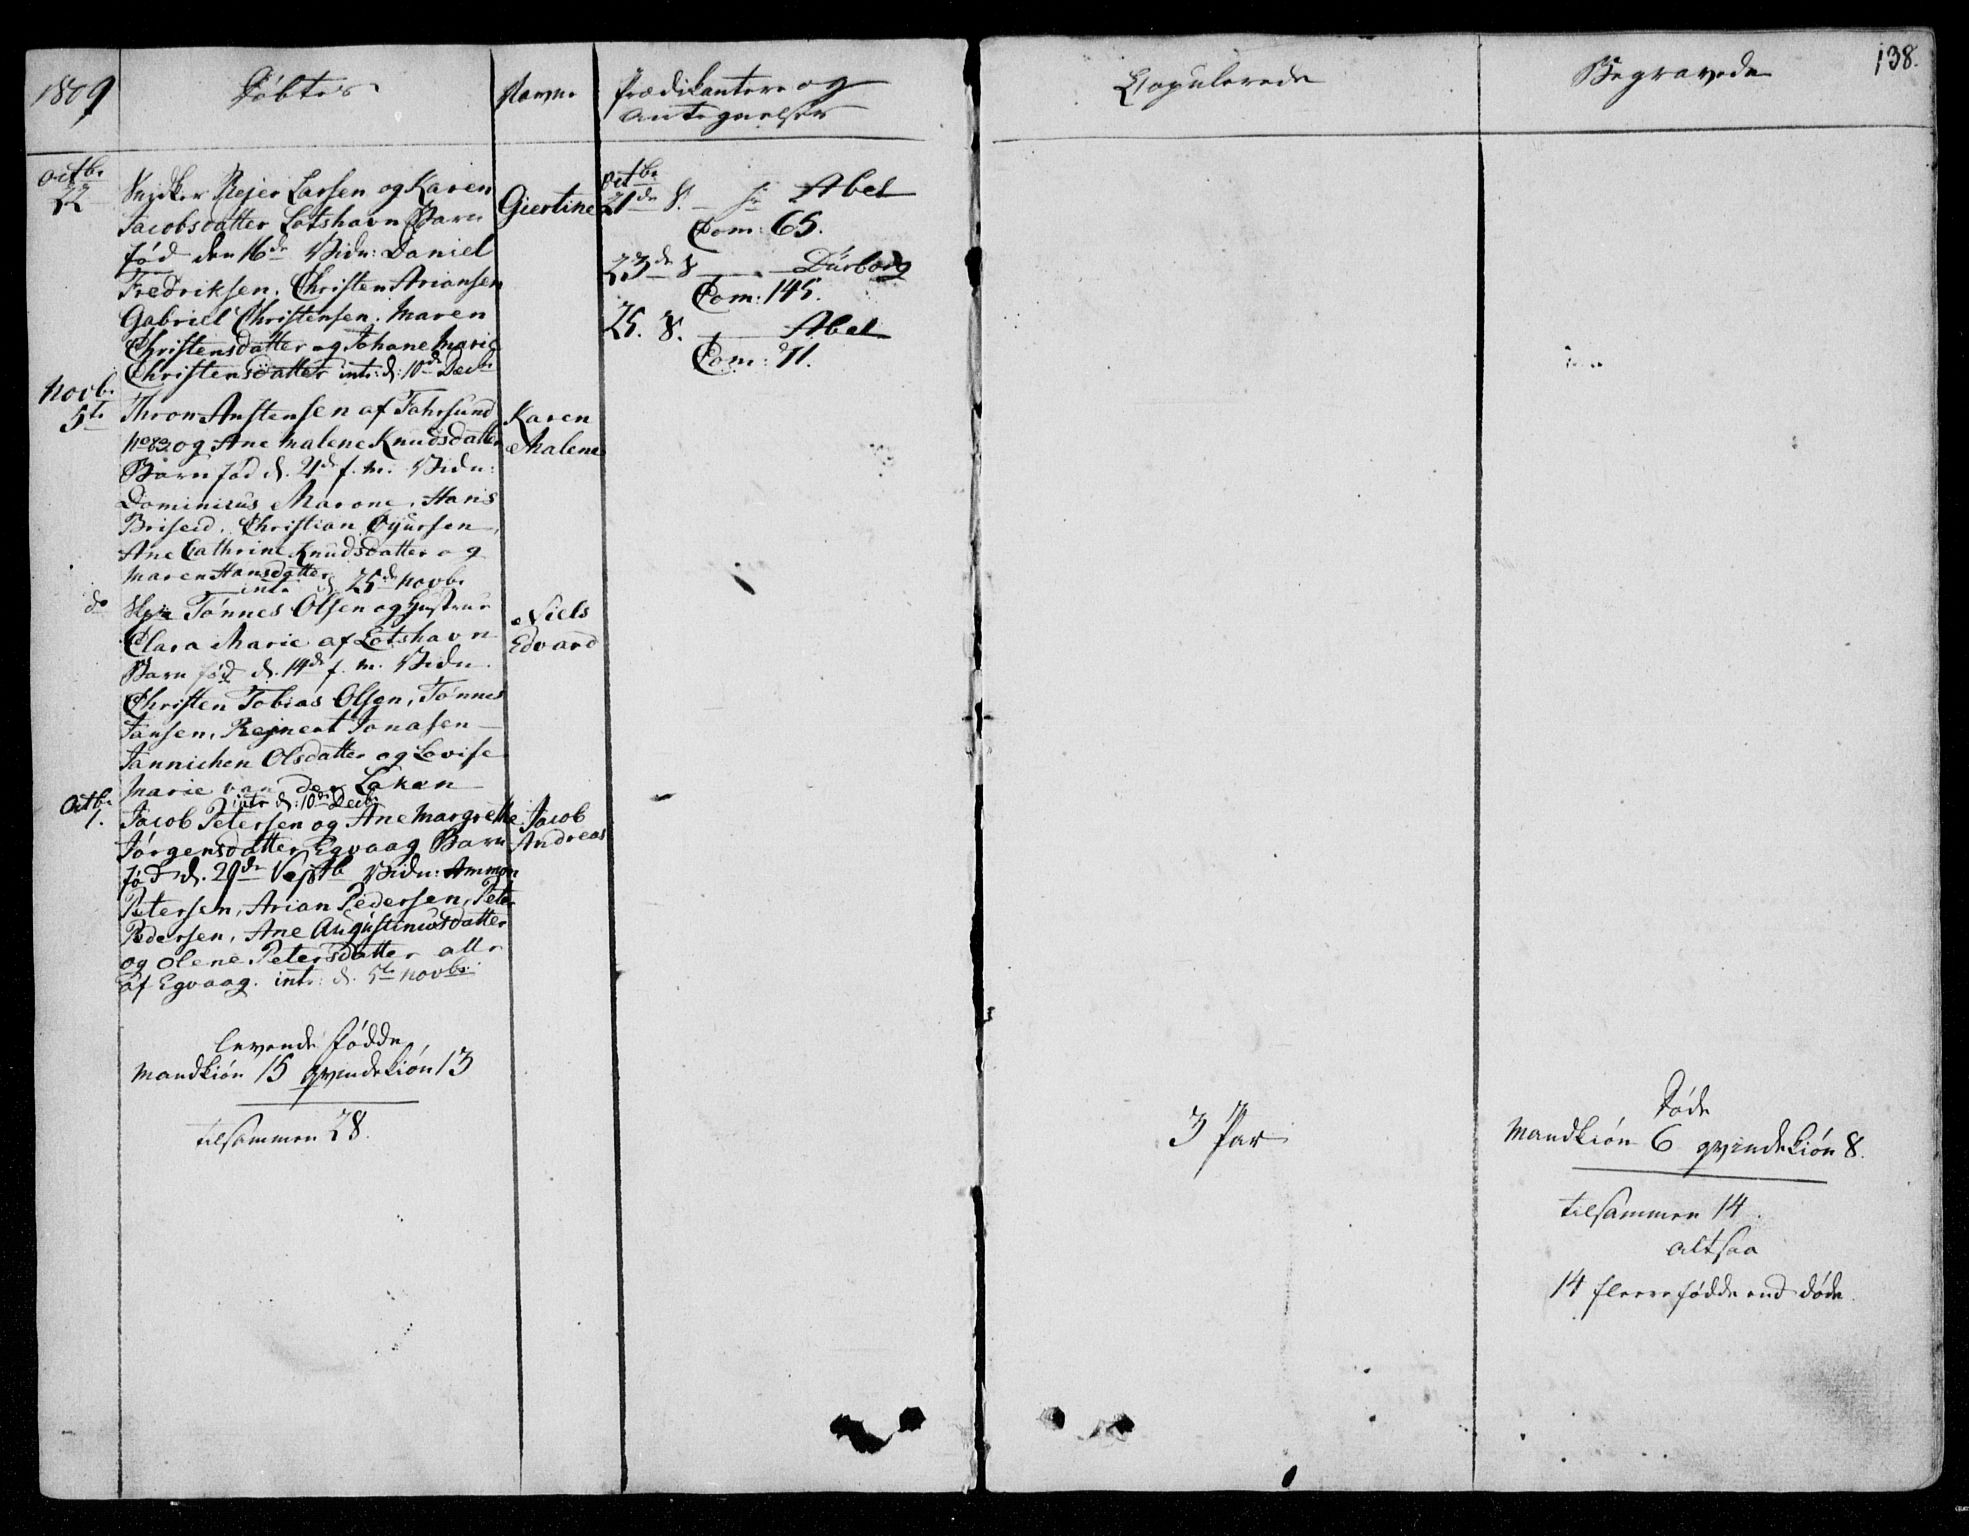 1809
Döbte
Navne
Prædikantere og
Antegnelser
Copulerede
Begravede
138.
Octbr
22
Snedker Rejer Larsen og Karen
Jacobsdatter Lotshavn Barn
föd den 16de Vidn: Daniel
Fredriksen. Christen Ariansen
Gabriel Christensen. Maren
Christensdatter og Johane Marie
Christensdatter intr: d: 10de Decbr
Giertine
Octbr
21de S. Hr Abel
Com: 65.
23de S Dürborg
Com: 145.
25. S. Abel
Com: 71.
Novbr
5te
Thron Anstensen af Fahrsund
No 83 og Ane Malene Knudsdatter
Barn föd d. 21de f. m. Vidn:
Dominicus Marone. Hans
Briseid. Christian Öyursen,
Ane Cathrine Knudsdatter og
Maren Hansdatter
intr d 25de Novbr
Karen
Malene
do
Tönnes Olsen og Hustrue
Clara Marie af Lotshavn
Barn föd d. 14de f. m. Vidn.
Christen Tobias Olsen, Tönnes
Jansen, Rejnert Jonasen
Jannichen Olsdatter og Lovise
Marie van der Laken
intr d: 10de Decbr
Niels
Edvard
Octbr
1.
Jacob Petersen og Ane Margrethe
Jörgensdatter Egvaag Barn
föd d. 29de Septb Vidn: Ammon
Petersen, Arian Pedersen, Peter
Pedersen, Ane Augustinusdatter
og Olene Petersdatter alle
af Egvaag. intr: d. 5te Novbr.
Jacob
Andreas
levende födde
Mandkiön 15 qvindekiön 13
tilsammen 28.
3 Par
Döde
Mandkiön 6 qvindekiön 8.
tilsammen 14.
altsaa
14 fleere födde end döde.